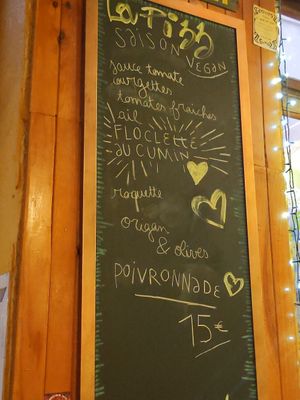 La Pizz
SAISON
VEGAN
sauce tomate
courgettes
tomates fraîches
ail
FLOCLETTE
AU CUMIN
roquette
origan
& olives
POIVRONNADE
15€